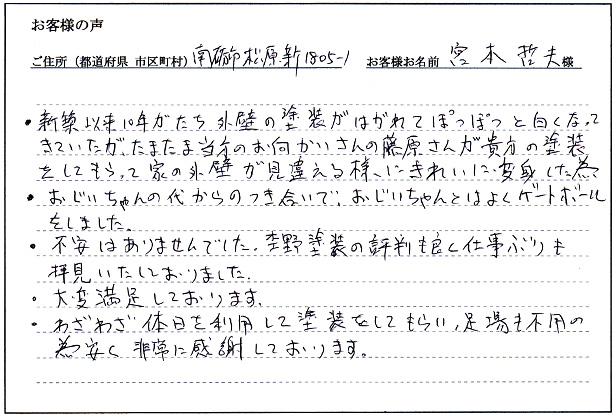 お客様の声
ご住所 (都道府県 市区町村) 南砺市松原新1805-1 お客様お名前 宮本哲夫 様
・新築以来10年がたち外壁の塗装がはがれてぽつぽつと白くなって
きていたが、たまたま当方のお向かいさんの藤原さんが貴方の塗装
をしてもらって家の外壁が見違える様にきれいに変身した為
・おじいちゃんの代からのつき合いで、おじいちゃんとはよくゲートボール
をしました。
・不安はありませんでした。野塗装の評判も良く仕事ぶりも
拝見いたしておりました。
・大変満足しております。
・わざわざ休日を利用して塗装をしてもらい、足場も不用の
為安く非常に感謝しております。